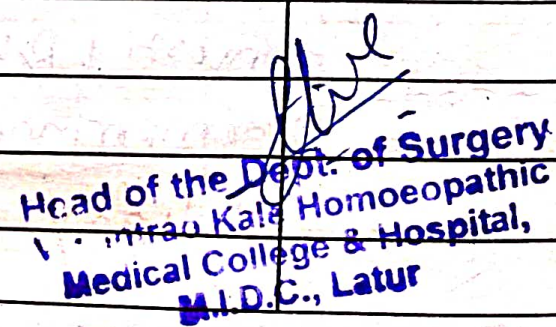 Head of the Dept. of Surgery
Kale Homoeopathic
Medical College & Hospital,
M.I.D.C., Latur